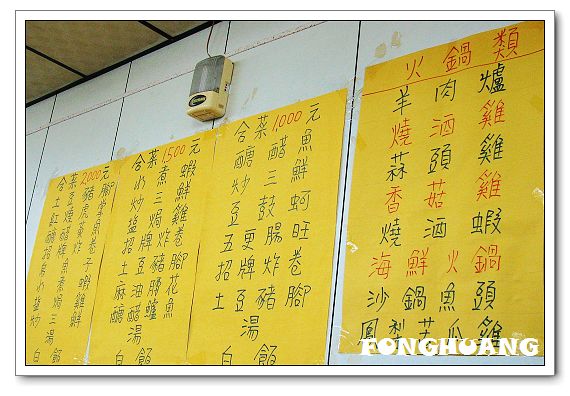 火鍋類
羊肉爐
燒酒雞
蒜頭雞
香菇雞
燒酒蝦
海鮮火鍋
沙鍋魚頭
鳳梨苦瓜雞
合菜1,000元
醣醋魚
炒三鮮
豆鼓蚵
五更腸旺
招牌炸卷
土豆豬腳
湯
白飯
合菜1500元
水煮蝦
炒三鮮
鹽焗雞
招牌炸卷
土豆豬腳
麻油腰花
醣醋鱸魚
湯
白飯
合菜2000元
土豆豬腳
紅燒虎掌
招牌炸卷
鹽焗雞
炒三鮮
湯
白飯
FONGHUANG